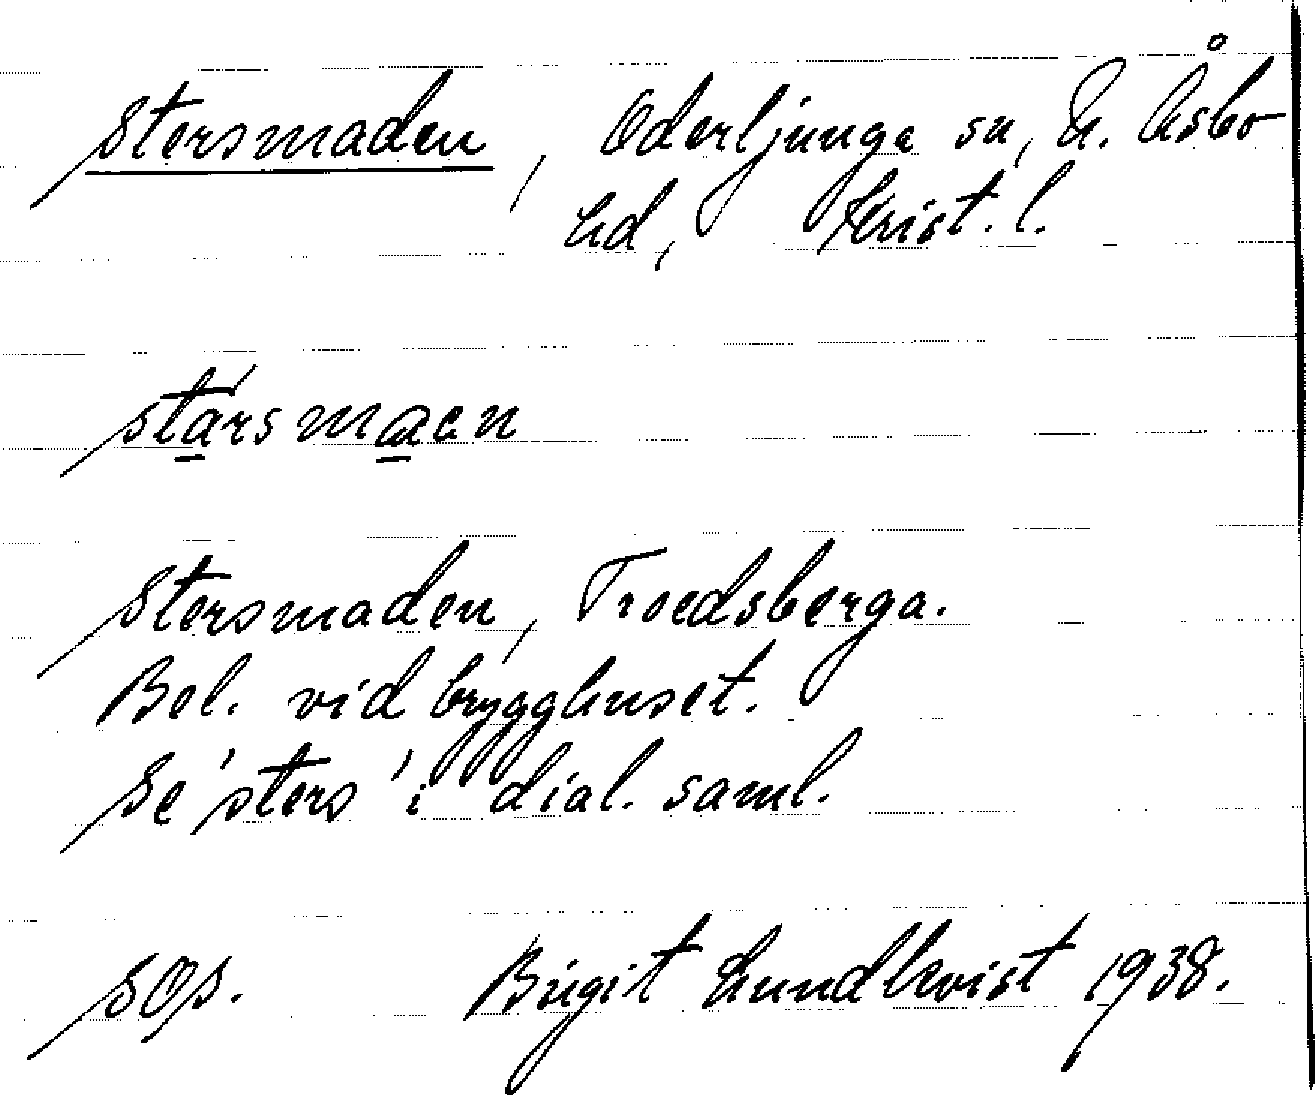 Stersmaden, Oderljunga sn, N. Åsbo
hd, Krist. l.
stársmaen
Stersmaden, Troedsberga.
Bel. vid brygghuset.
Se 'sters' i dial. saml.
SOS. Birgit Lundkvist 1938.